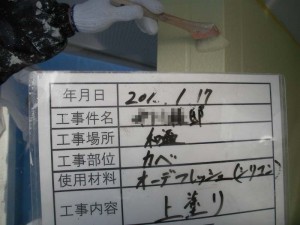 年月日 201_ 1 17
工事件名 邸
工事場所
工事部位 カベ
使用材料 オーデフレッシュ(シリコン)
工事内容 上塗り